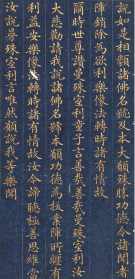 說如是相類諸佛名號及本大願殊勝功德令諸聞者
業障銷除為欲利樂像法轉時諸有情故
爾時世尊讚曼殊室利童子言善哉善哉曼殊室利汝以
大悲勸請我說諸佛名號本願功德為拔業障所纏有情
利益安樂像法轉時諸有情故汝今諦聽極善思惟當為
汝說曼殊室利言唯然願說我等樂聞